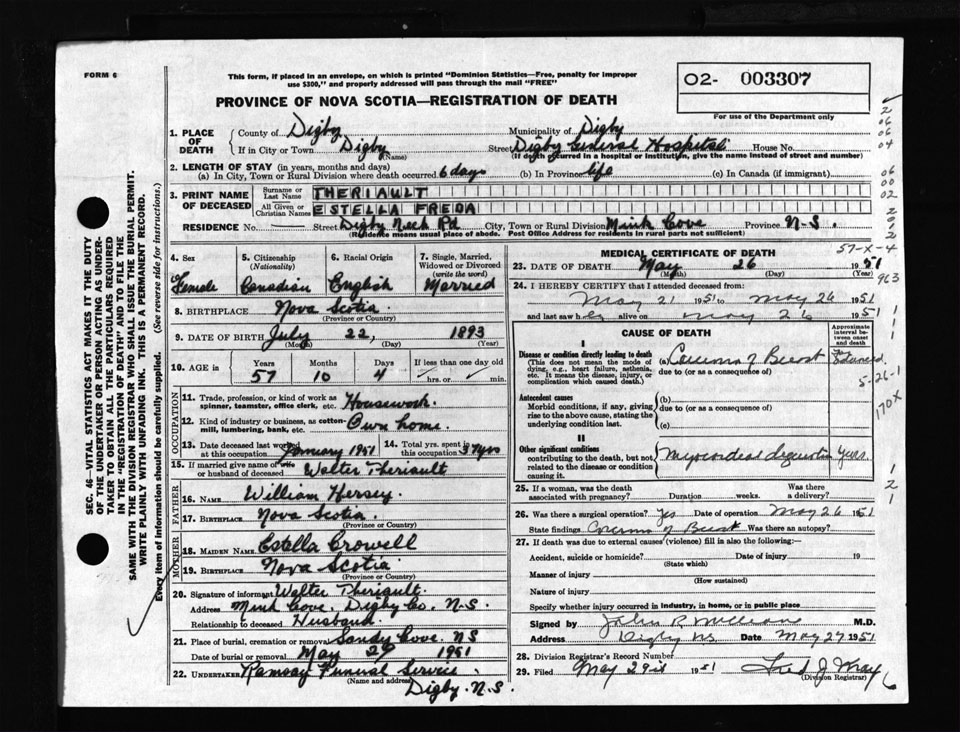 FORM 6
This form, if placed in an envelope, on which is printed "Dominion Statistics—Free, penalty for improper
use $300," and properly addressed will pass through the mail "FREE"
PROVINCE OF NOVA SCOTIA—REGISTRATION OF DEATH
02- 003307
For use of the Department only
1. PLACE OF DEATH { County of Digby Municipality of Digby
If in City or Town Digby (Name) Street Digby General Hospital House No.
(If death occurred in a hospital or institution, give the name instead of street and number)
2. LENGTH OF STAY (in years, months and days)
(a) In City, Town or Rural Division where death occurred 6 days (b) In Province life (c) In Canada (if immigrant)
3. PRINT NAME OF DECEASED { Surname or Last Name THERIAULT
All Given or Christian Names ESTELLA FREDA
RESIDENCE No. — Street Digby Neck Rd City, Town or Rural Division Mink Cove Province N-S.
(Residence means usual place of abode. Post Office Address for residents in rural parts not sufficient)
4. Sex Female
5. Citizenship (Nationality) Canadian
6. Racial Origin English
7. Single, Married, Widowed or Divorced (write the word) Married
8. BIRTHPLACE Nova Scotia
(Province or Country)
9. DATE OF BIRTH July 22, 1893
(Month) (Day) (Year)
10. AGE in Years 57 Months 10 Days 4 If less than one day old
hrs. or min.
OCCUPATION
11. Trade, profession, or kind of work as spinner, teamster, office clerk, etc. Housework.
12. Kind of industry or business, as cotton-mill, lumbering, bank, etc. Own home.
13. Date deceased last worked at this occupation January 1951
14. Total yrs. spent in this occupation 37 yrs
15. If married give name of wife or husband of deceased Walter Theriault
FATHER
16. NAME William Hersey.
17. BIRTHPLACE Nova Scotia.
(Province or Country)
MOTHER
18. MAIDEN NAME Estella Crowell
19. BIRTHPLACE Nova Scotia
(Province or Country)
20. Signature of informant Walter Theriault.
Address Mink Cove, Digby Co. N-S.
Relationship to deceased Husband.
21. Place of burial, cremation or removal Sandy Cove. NS
Date of burial or removal May 29 1951
22. UNDERTAKER Ramsay Funeral Service.
(Name and address) Digby. N.S.
MEDICAL CERTIFICATE OF DEATH
57-X-4
23. DATE OF DEATH May 26 1951
(Month) (Day) (Year)
963
24. I HEREBY CERTIFY that I attended deceased from:
May 21 1951 to May 26 1951
and last saw her alive on May 26 1951
CAUSE OF DEATH
Approximate interval between onset and death
I
Disease or condition directly leading to death
(This does not mean the mode of dying, e.g., heart failure, asthenia, etc. It means the disease, injury, or complication which caused death.)
(a) Carcinoma of Breast Advanced.
due to (or as a consequence of)
5-26-1
170X
Antecedent causes
Morbid conditions, if any, giving rise to the above cause, stating the underlying condition last.
(b)
due to (or as a consequence of)
(c)
II
Other significant conditions
contributing to the death, but not related to the disease or condition causing it.
Myocardial years.
25. If a woman, was the death associated with pregnancy? Duration weeks. Was there a delivery?
26. Was there a surgical operation? yes Date of operation May 26 1951
State findings Carcinoma of Breast Was there an autopsy?
27. If death was due to external causes (violence) fill in also the following:
Accident, suicide or homicide? Date of injury 19
(State which)
Manner of injury
(How sustained)
Nature of injury
Specify whether injury occurred in industry, in home, or in public place
Signed by John R McCleave M.D.
Address Digby NS. Date May 27 1951
28. Division Registrar's Record Number
29. Filed May 29th 1951 Fred J May
(Division Registrar)
6
SEC. 46—VITAL STATISTICS ACT MAKES IT THE DUTY
OF THE UNDERTAKER OR PERSON ACTING AS UNDER-
TAKER TO OBTAIN ALL THE PARTICULARS REQUIRED
IN THE "REGISTRATION OF DEATH" AND TO FILE THE
SAME WITH THE DIVISION REGISTRAR WHO SHALL ISSUE THE BURIAL PERMIT.
WRITE PLAINLY WITH UNFADING INK. THIS IS A PERMANENT RECORD.
Every item of information should be carefully supplied. (See reverse side for instructions.)
2
06
06
04
06
00
02
2
0
1
2